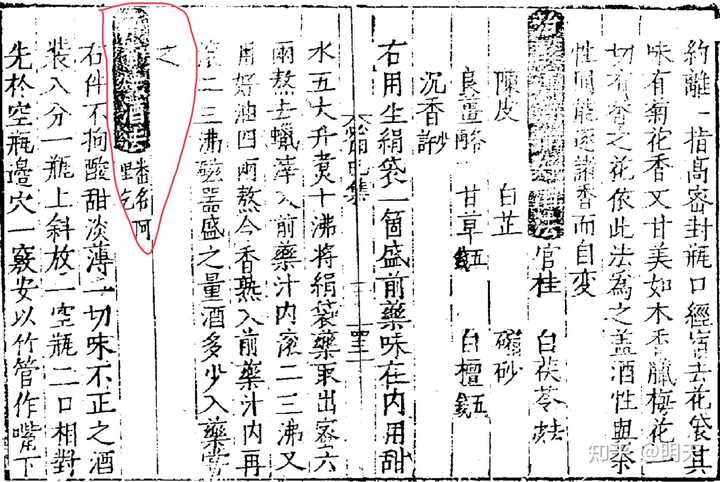 約離一指高密封瓶口經宿去花袋其
味有氣花香又甘美如木香臘梅花一
切有香之花依此法為之盖酒性與茶
性同能逐諸香而自变
官桂 白茯苓
陳皮 白芷 縮砂
良薑 甘草五錢 白檀五錢
沉香少許
右用生絹袋一箇盛前藥味在内用甜
水五大升煮十沸將絹袋藥取出蜜六
必用己集
兩熬去蠟滓入前藥汁内滾二三沸又
用好油四兩熬令香熟入前藥汁内再
滾二三沸磁器盛之量酒多少入藥嘗
之
番名阿里乞
右件不拘酸甜淡薄一切味不正之酒
装八分一瓶上斜放一空瓶二口相對
先於空瓶邊穴一竅安以竹管作嘴下
知乎 @明天